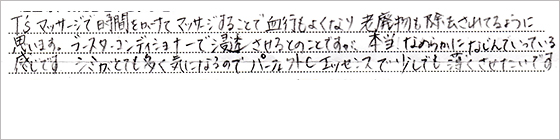 T'sマッサージで時間をかけてマッサージすることで血行もよくなり老廃物も除去されてるように
思います。ブースターコンディショナーで浸透させるとのことですが、本当、なめらかになじんでいっている
感じです シミがとても多く気になるのでパーフェクトCエッセンスで少しでも薄くさせたいです